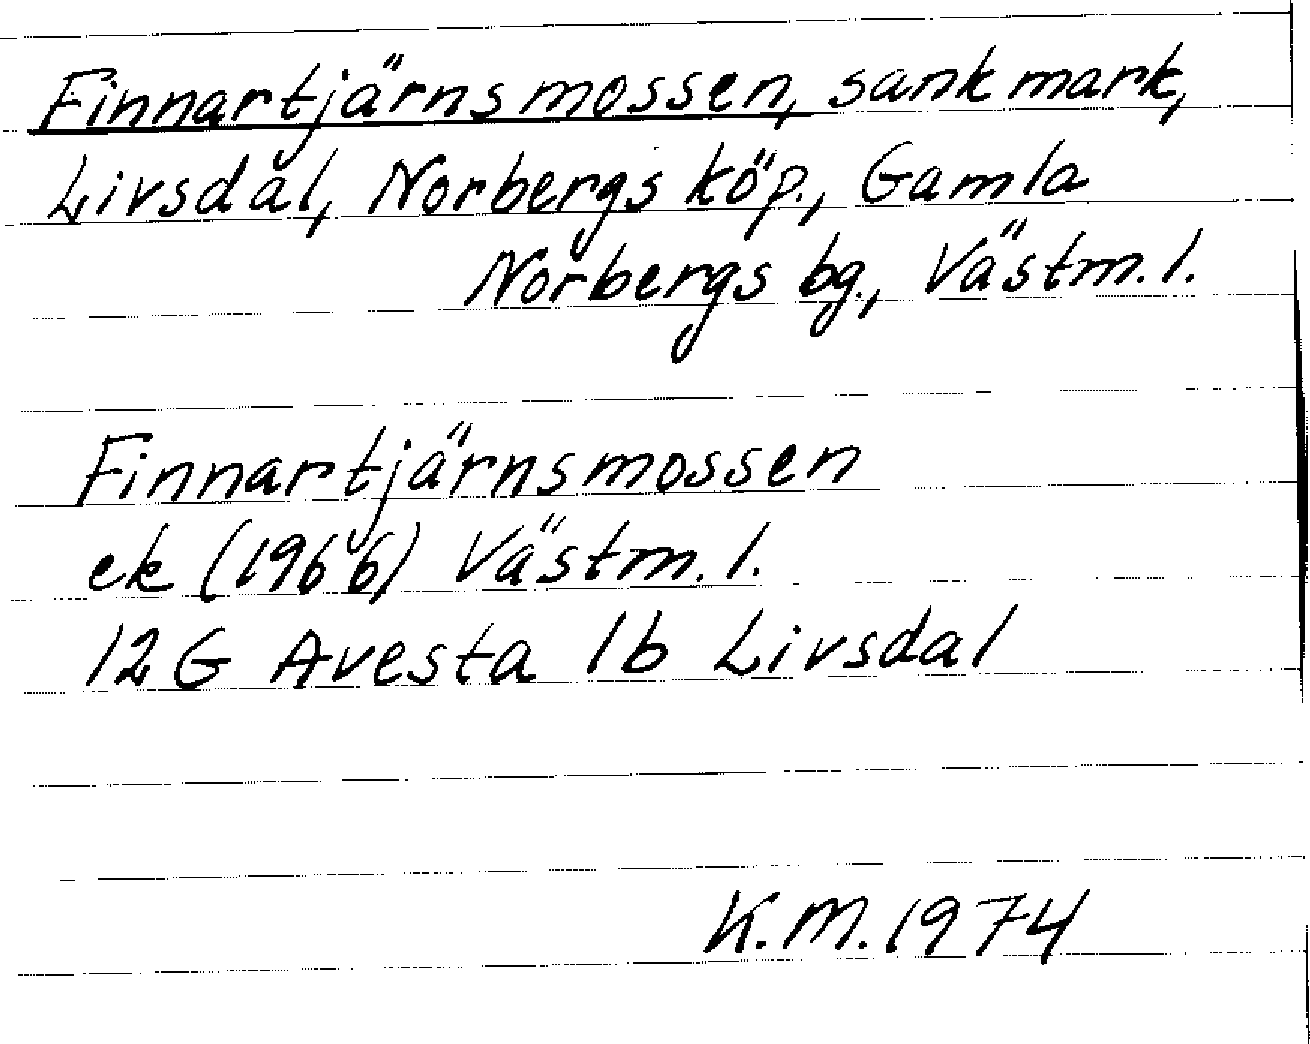 Finnartjärnsmossen, sank mark,
Livsdal, Norbergs köp., Gamla
Norbergs bg., Västm. l.
Finnartjärnsmossen
ek (1966) Västm. l.
12G Avesta 1b Livsdal
K.M. 1974